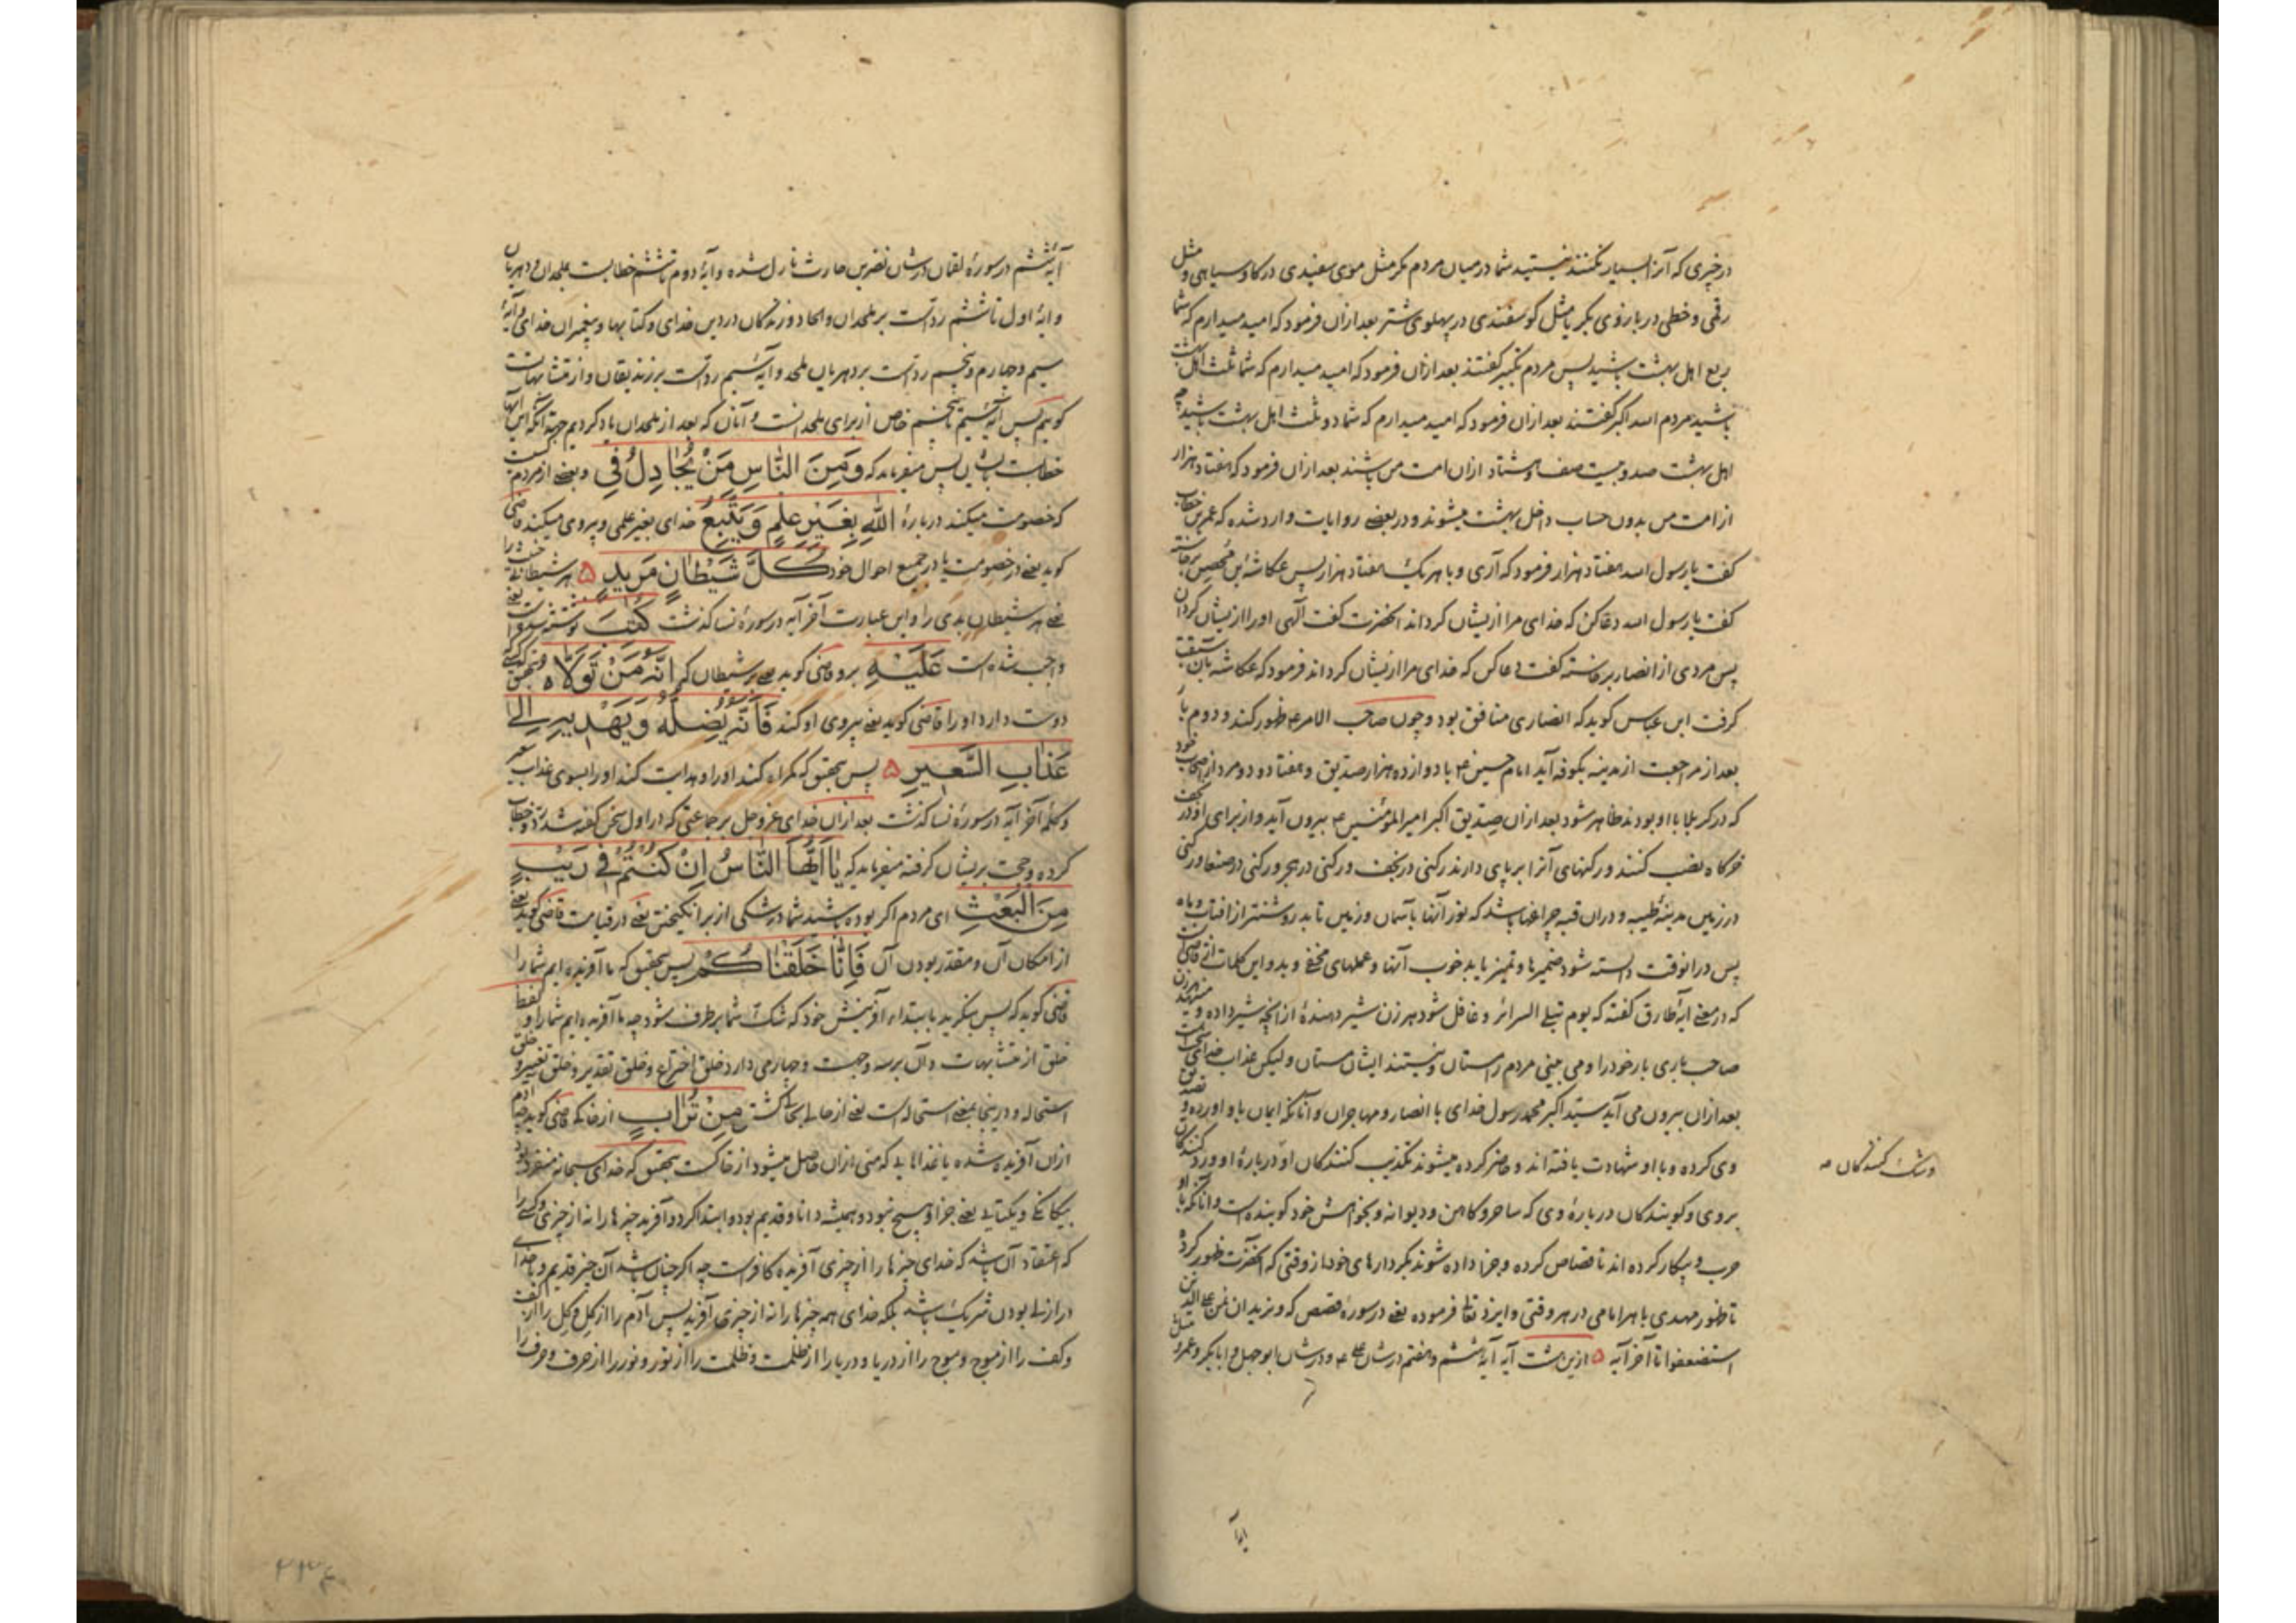 در چیزی که آنرا بسیار نکنند نیستید شما در میان مردم مکر مثل موی سفیدی در کاو سیاهی و مثل
رقمی و خطی در بازوی بکر یا مثل کوسفندی در پهلوی شتر بعد ازان فرمود که امید میدارم که شما
ربع اهل بهشت باشید پس مردم تکبیر کفتند بعد ازان فرمود که امید میدارم که شما ثلث اهل بهشت
باشید مردم الله اکبر کفتند بعد ازان فرمود که امید میدارم که شما دو ثلث اهل بهشت باشید چه
اهل بهشت صد و بیست صف اند و هشتاد ازان امت من باشند بعد ازان فرمود که هفتاد هزار
از امت من بدون حساب داخل بهشت میشوند و در بعضی روایات وارد شده که عمر بن خطاب
کفت یا رسول الله هفتاد هزار فرمود که آری و با هر یک هفتاد هزار پس عکاشه بن محصن برخاسته
کفت یا رسول الله دعا کن که خدای مرا ازیشان کرداند انحضرت کفت آلهی او را ازیشان کردان
پس مردی از انصار برخاسته کفت دعا کن که خدای مرا ازیشان کرداند فرمود که عکاشه بان سبقت
کرفت ابن عباس کوید که انصاری منافق بود و چون صاحب الامر ع ظهور کند و دوم بار
بعد از مراجعت از مدینه بکوفه آید امام حسین ع با دوازده هزار صدیق و هفتاد و دو مرد از اصحاب خود
که در کربلا با او بودند ظاهر شود بعد ازان صدیق اکبر امیر المؤمنین ع بیرون آید و از برای او در نجف
خرکاه نصب کنند و رکنهای آنرا بر پای دارند رکنی در نجف و رکنی در هجر و رکنی در صنعا و رکنی
در زمین مدینهٔ طیبه و دران قبه چراغها باشد که نور آنها بآسمان و زمین تابد روشنتر از افتاب و ماه
پس در انوقت دانسته شود ضمیرها و تمیز یابد خوب آنها و عملهای مخفی و بد و این کلمات
که در معنی آیهٔ طارق کفته که یوم تبلی السرائر و غافل شود هر زن شیر دهندهٔ از انچه شیر داده و
صاحب باری بار خود را و می بینی مردم را مستان و نیستند ایشان مستان و لیکن عذاب خدای سخت است
بعد ازان بیرون می آید سید اکبر محمد رسول خدای با انصار و مهاجران و آنانکه ایمان باو اورده و تصدیق
وی کرده و با او شهادت یافته اند و حاضر کرده میشوند تکذیب کنندکان او و رد کنندکان
وشک کنندکان صه
بروی و کویندکان دربارهٔ وی که ساحر و کاهن و دیوانه و بخواهش خود کوینده است و آنانکه با او
حرب و پیکار کرده اند تا قصاص کرده و جزا داده شوند بکردارهای خود از وقتی که انحضرت ظهور کرد
تا ظهور مهدی با هر امامی در هر وقتی و ایزد تعالی فرموده یعنی در سورهٔ قصص که و نرید ان نمن علی الذین
استضعفوا تا آخر آیه ۵ ازین هشت آیه آیهٔ ششم و هفتم در شان علی ع و در شان ابو جهل و ابابکر و عمر و
آیهٔ ششم در سورهٔ لقمان در شان نضر بن حارث نازل شده و آیهٔ دوم تا ششم خطابست بملحدان و دهریان
و ایهٔ اول تا ششم رد است بر ملحدان و الحاد ورزندکان در دین خدای و کتابها و پیغمبران خدای و آیهٔ
سیم و چهارم و پنجم رد است بر دهریان ملحد و آیهٔ سیم رد است بر زندیقان و از متشابهات
کویم پس آیهٔ سیم تا پنجم خاص از برای ملحدانست و آنان که بعد از ملحدان یاد کردیم جهة انکه این آیها
خطابست بایشان پس میفرماید که وَمِنَ النَّاسِ مَنْ يُجَادِلُ فِي و بعضی از مردم کسیست
که خصومت میکند دربارهٔ اللهِ بِغَيْرِ عِلْمٍ وَيَتَّبِعُ خدای بغیر علمی و پیروی میکند قاضی
کوید یعنی در خصومت یا در جمیع احوال خود كُلَّ شَيْطَانٍ مَرِيدٍ ۵ هر شیطانی
یعنی هر شیطان بدی را و این عبارت آخر آیه در سورهٔ نسا کذشت كُتِبَ نوشته شده است یعنی
واجب شده است عَلَيْهِ برو قاضی کوید یعنی بر شیطان که اَنَّهُ مَنْ تَوَلَّاهُ بتحقیق هر که
دوست دارد او را قاضی کوید یعنی پیروی او کند فَاَنَّهُ يُضِلُّهُ وَيَهْدِيهِ اِلَى
عَذَابِ السَّعِيرِ ۵ پس بتحقیق که کمراه کند او را و هدایت کند او را بسوی عذاب سعیر
و کلمهٔ آخر آیه در سورهٔ نسا کذشت بعد ازان خدای عز و جل بر جماعتی که در اول سخن کفته شد رد و خطاب
کرده و حجت بریشان کرفته میفرماید که يَا اَيُّهَا النَّاسُ اِنْ كُنْتُمْ فِي رَيْبٍ
مِنَ الْبَعْثِ ای مردم اکر بوده باشید شما در شکی از برانکیختن یعنی در قیامت قاضی کوید یعنی
از امکان آن و مقدر بودن آن فَاِنَّا خَلَقْنَاكُمْ پس بتحقیق که ما آفریده ایم شما را
قاضی کوید که پس بنکرید بابتداء آفرینش خود که شک شما برطرف شود چه ما آفریده ایم شما را و لفظ
خلق از متشابهات و آن بر سه وجهست و چهارمی دارد خلق اختراع و خلق تقدیر و خلق تغییر و خلق
استحاله و در اینجا بمعنی استحاله است یعنی از حالی بحالی کشتن مِنْ تُرَابٍ از خاکی قاضی کوید چه آدم
ازان آفریده شده یا غذاهایی که منی ازان حاصل میشود از خاکست بتحقیق که خدای سبحانه منفرد بود
بیکانکی و یکتایی یعنی جز او هیچ نبود و همیشه دانا و قدیم بود و ابتدا کرد و آفرید چیزها را نه از چیزی و کسی را
که اعتقاد آن باشد که خدای چیزها را از چیزی آفریده کافرست چه اکر چنان باشد آن چیز قدیم و با خدای
در ازلی بودن شریک باشد بلکه خدای همه چیزها را نه از چیزی آفرید پس آدم را از کل و کل را از کف
و کف را از موج و موج را از دریا و دریا را از ظلمت و ظلمت را از نور و نور را از حرف و حرف را